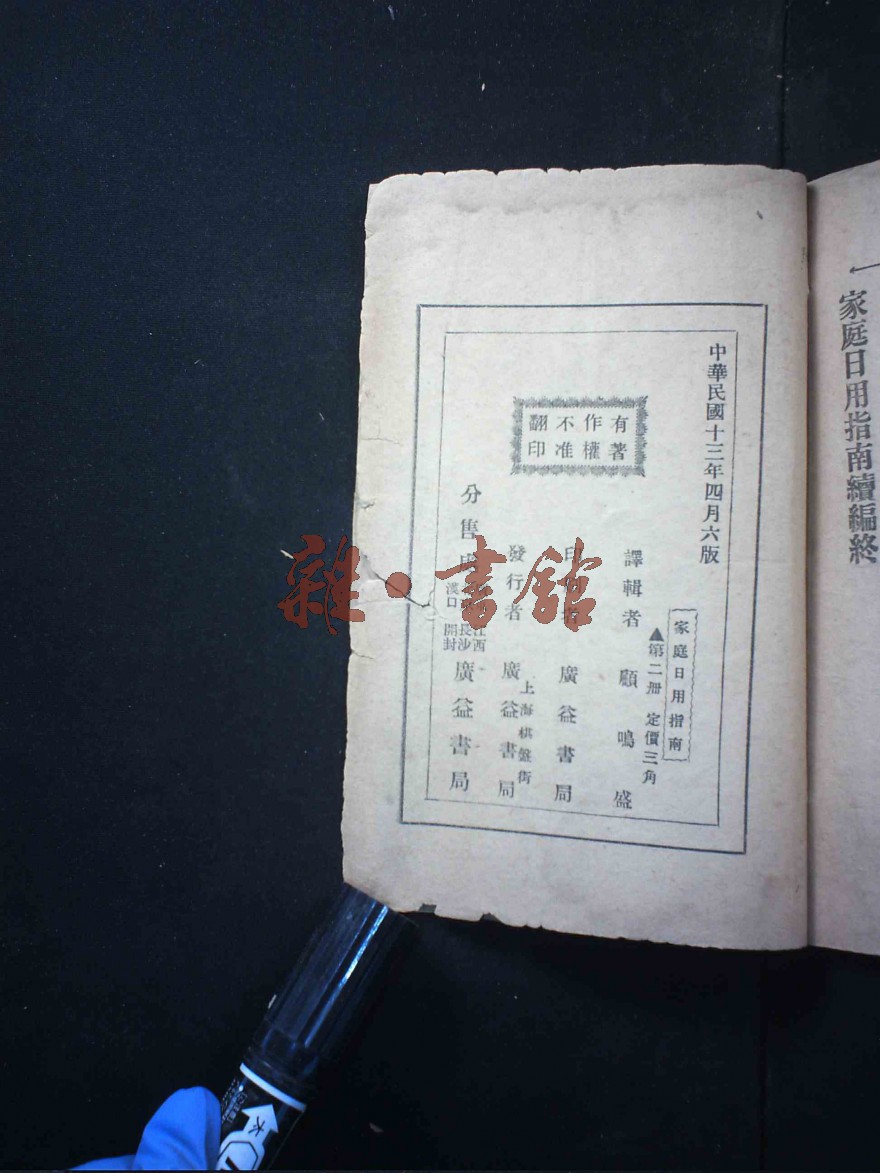 一家庭日用指南續編終
中華民國十三年四月六版
有著作權不准翻印
家庭日用指南
▲第二册 定價三角
譯輯者 顧鳴盛
印刷者 廣益書局
發行者 上海棋盤街 廣益書局
分售處
江西
長沙
漢口 開封
廣益書局
雜·書館
大